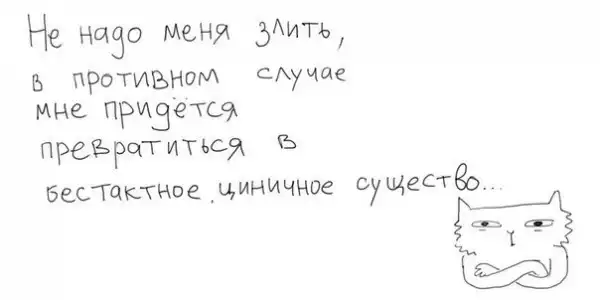 Не надо меня злить,
в противном случае
мне придётся
превратиться в
бестактное, циничное существо...